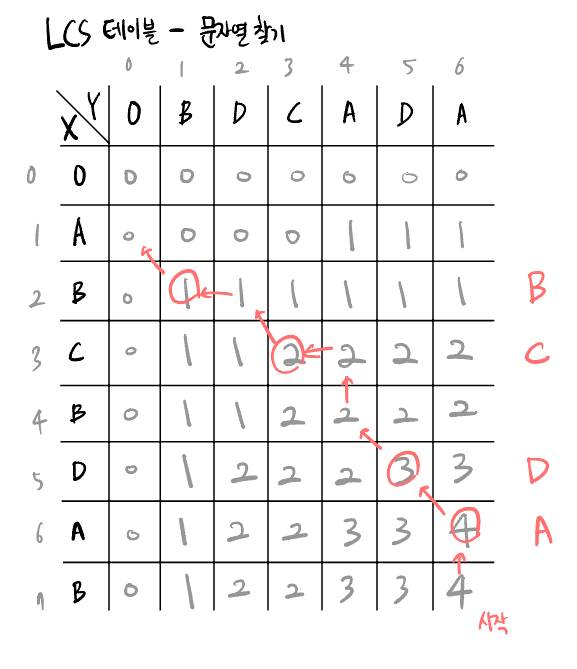 LCS 테이블 - 문자열 찾기
0 1 2 3 4 5 6
X Y 0 B D C A D A
0 0 0 0 0 0 0 0 0
1 A 0 0 0 0 1 1 1
2 B 0 1 1 1 1 1 1 B
3 C 0 1 1 2 2 2 2 C
4 B 0 1 1 2 2 2 2
5 D 0 1 2 2 2 3 3 D
6 A 0 1 2 2 3 3 4 A
7 B 0 1 2 2 3 3 4
시작